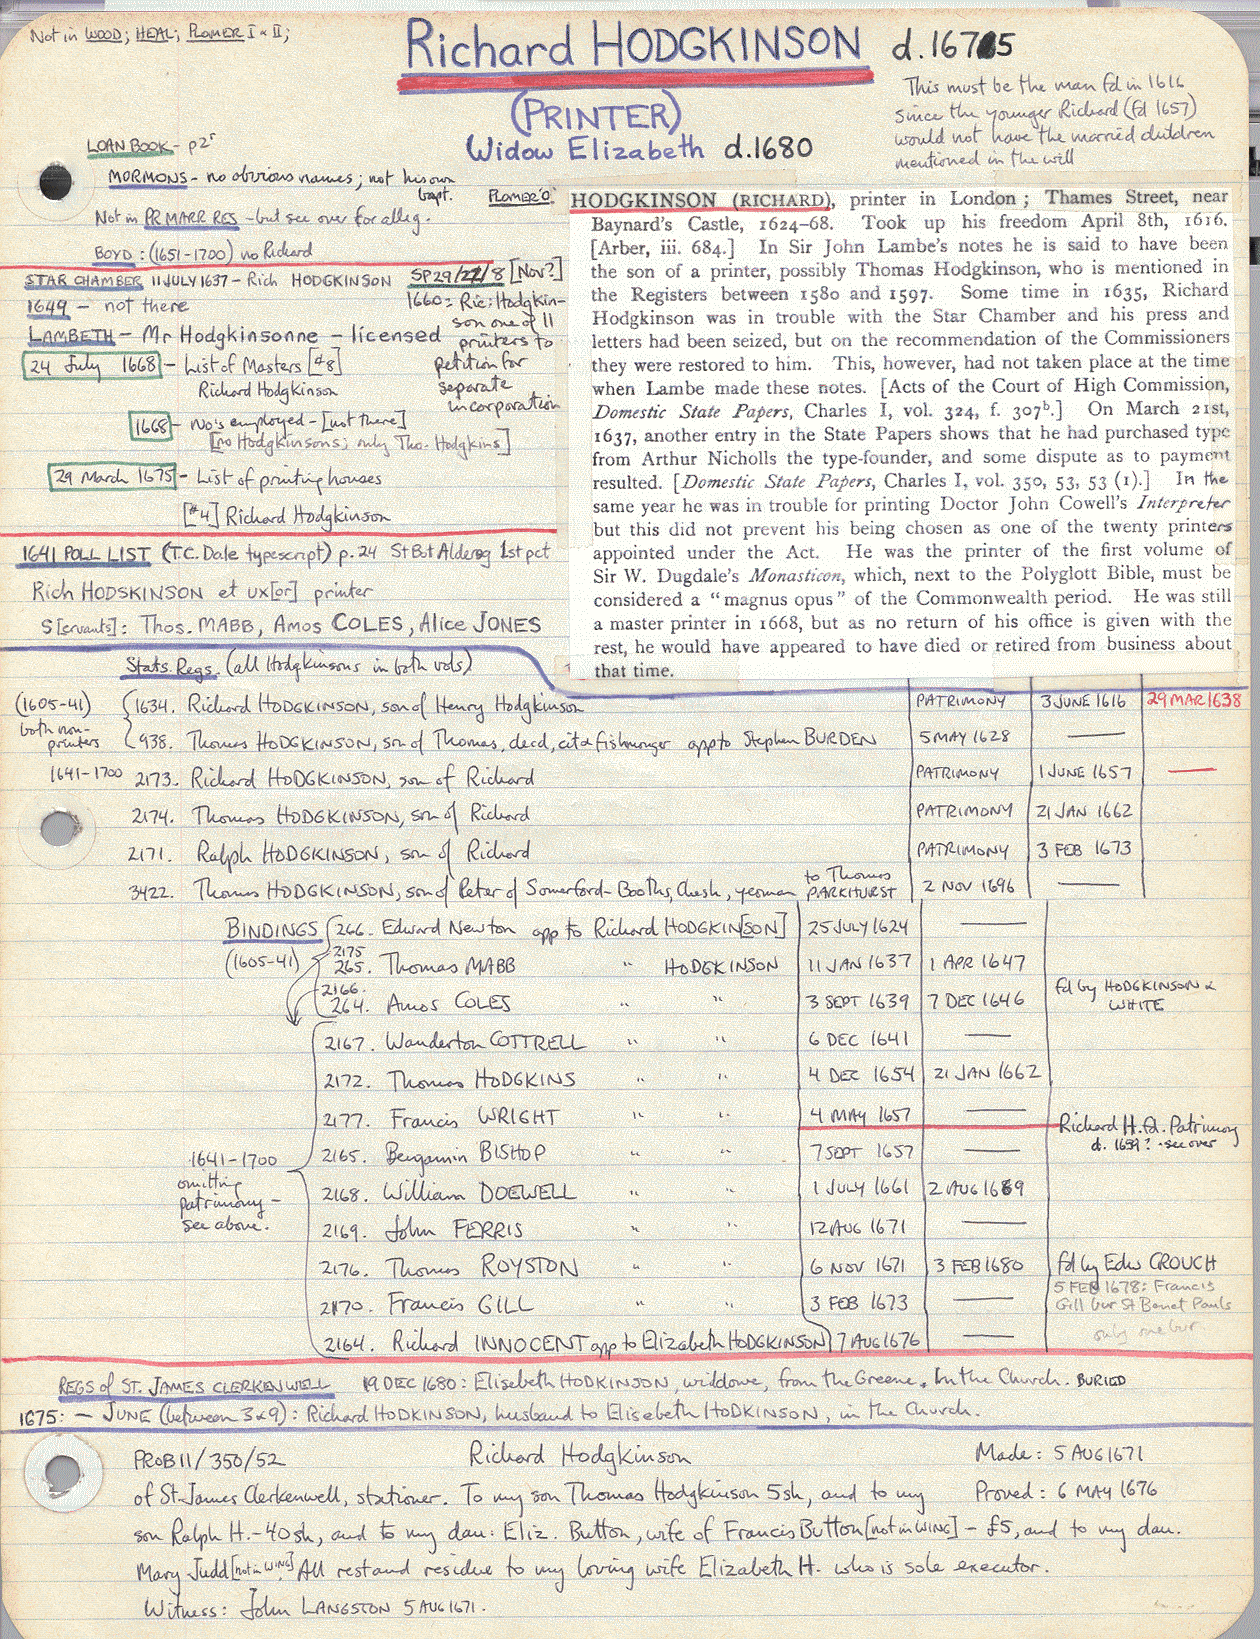 Not in WOOD; HEAL; PLOMER I & II;
Richard HODGKINSON d.1675
This must be the man fd in 1616
since the younger Richard (fd 1657)
would not have the married children
mentioned in the will
(PRINTER)
Widow Elizabeth d.1680
LOAN BOOK - p2r
MORMONS - no obvious names; not his own
bapt.
Not in PR MARR RES - but see over for alleg.
BOYD: (1651-1700) no Richard
STAR CHAMBER 11 JULY 1637 - Rich HODGKINSON
1649 - not there
LAMBETH - Mr Hodgkinsonne - licensed
24 July 1668 - List of Masters [#8]
Richard Hodgkinson
1668 - No's employed - [not there]
[no Hodgkinsons; only Tho. Hodgkins]
29 March 1675 - List of printing houses
[#4] Richard Hodgkinson
SP29/22/8 [Nov?]
1660: Ric: Hodgkin-
son one of 11
printers to
petition for
separate
incorporation
PLOMER'O'
HODGKINSON (RICHARD), printer in London; Thames Street, near
Baynard's Castle, 1624-68. Took up his freedom April 8th, 1616.
[Arber, iii. 684.] In Sir John Lambe's notes he is said to have been
the son of a printer, possibly Thomas Hodgkinson, who is mentioned in
the Registers between 1580 and 1597. Some time in 1635, Richard
Hodgkinson was in trouble with the Star Chamber and his press and
letters had been seized, but on the recommendation of the Commissioners
they were restored to him. This, however, had not taken place at the time
when Lambe made these notes. [Acts of the Court of High Commission,
Domestic State Papers, Charles I, vol. 324, f. 307b.] On March 21st,
1637, another entry in the State Papers shows that he had purchased type
from Arthur Nicholls the type-founder, and some dispute as to payment
resulted. [Domestic State Papers, Charles I, vol. 350, 53, 53 (1).] In the
same year he was in trouble for printing Doctor John Cowell's Interpreter
but this did not prevent his being chosen as one of the twenty printers
appointed under the Act. He was the printer of the first volume of
Sir W. Dugdale's Monasticon, which, next to the Polyglott Bible, must be
considered a "magnus opus" of the Commonwealth period. He was still
a master printer in 1668, but as no return of his office is given with the
rest, he would have appeared to have died or retired from business about
that time.
1641 POLL LIST (T.C. Dale typescript) p.24 St Bot Aldersg 1st pct
Rich HODSKINSON et ux[or] printer
S[ervants]: Thos. MABB, Amos COLES, Alice JONES
Stats. Regs. (all Hodgkinsons in both vols)
(1605-41)
both non-
printers
1634. Richard HODGKINSON, son of Henry Hodgkinson PATRIMONY 3 JUNE 1616 29 MAR 1638
938. Thomas HODGKINSON, son of Thomas, decd, cit & fishmonger app to Stephen BURDEN 5 MAY 1628 —
1641-1700 2173. Richard HODGKINSON, son of Richard PATRIMONY 1 JUNE 1657 —
2174. Thomas HODGKINSON, son of Richard PATRIMONY 21 JAN 1662
2171. Ralph HODGKINSON, son of Richard PATRIMONY 3 FEB 1673
3422. Thomas HODGKINSON, son of Peter of Somerford-Booths, Chesh, yeoman to Thomas PARKHURST 2 NOV 1696 —
BINDINGS
(1605-41)
266. Edward Newton app to Richard HODGKIN[SON] 25 JULY 1624 —
2175
265. Thomas MABB " HODGKINSON 11 JAN 1637 1 APR 1647
2166.
264. Amos COLES " " 3 SEPT 1639 7 DEC 1646 fd by HODGKINSON &
WHITE
2167. Wanderton COTTRELL " " 6 DEC 1641 —
2172. Thomas HODGKINS " " 4 DEC 1654 21 JAN 1662
2177. Francis WRIGHT " " 4 MAY 1657 —
Richard H. fd. Patrimony
d. 1659? - see over
1641-1700
omitting
patrimony -
see above.
2165. Benjamin BISHOP " " 7 SEPT 1657 —
2168. William DOEWELL " " 1 JULY 1661 2 AUG 1669
2169. John FERRIS " " 12 AUG 1671 —
2176. Thomas ROYSTON " " 6 NOV 1671 3 FEB 1680 fd by Edw CROUCH
2170. Francis GILL " " 3 FEB 1673 —
5 FEB 1678: Francis
Gill bur St Benet Pauls
only one bur
2164. Richard INNOCENT app to Elizabeth HODGKINSON 7 AUG 1676 —
REGS of ST. JAMES CLERKENWELL 19 DEC 1680: Elisebeth HODKINSON, widdowe, from the Greene, In the Church. BURIED
1675: - JUNE (between 3 & 9): Richard HODKINSON, husband to Elisebeth HODKINSON, in the Church.
PROB 11/350/52 Richard Hodgkinson Made: 5 AUG 1671
of St James Clerkenwell, stationer. To my son Thomas Hodgkinson 5sh, and to my Proved: 6 MAY 1676
son Ralph H. - 40sh, and to my dau: Eliz. Button, wife of Francis Button [not in WING] - £5, and to my dau.
Mary Judd [not in WING] All rest and residue to my loving wife Elizabeth H. who is sole executor.
Witness: John LANGSTON 5 AUG 1671.